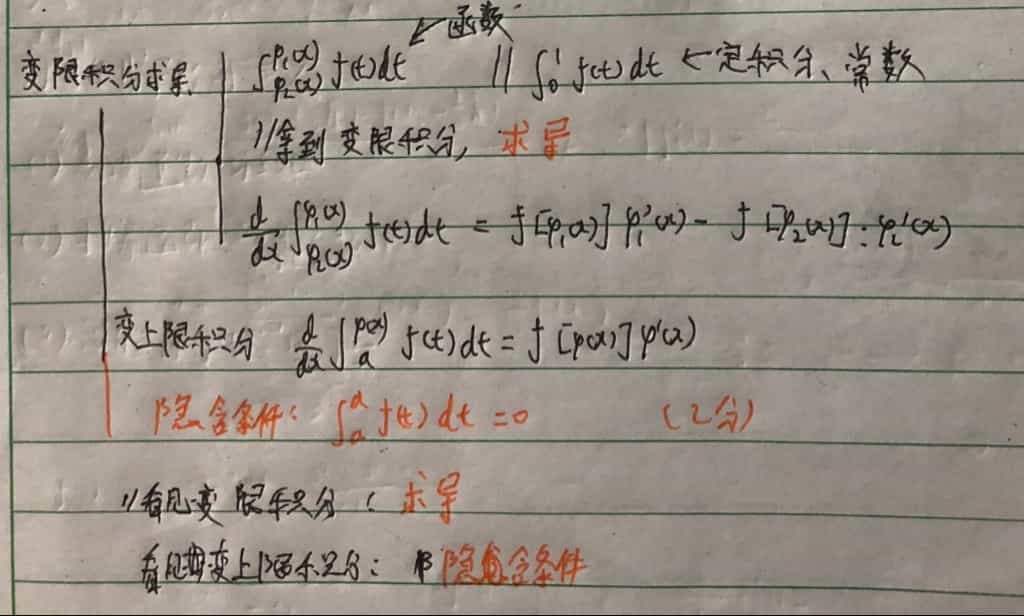 函数
变限积分求导 ∫_{φ₂(x)}^{φ₁(x)} f(t)dt // ∫₀¹ f(t)dt ← 定积分、常数
//拿到变限积分, 求导
d/dx ∫_{φ₂(x)}^{φ₁(x)} f(t)dt = f[φ₁(x)]φ₁'(x) - f[φ₂(x)]·φ₂'(x)
变上限积分 d/dx ∫_a^{φ(x)} f(t)dt = f[φ(x)]φ'(x)
隐含条件: ∫_a^a f(t)dt = 0 (2分)
//看见变限积分: 求导
看见变上限积分: 隐含条件